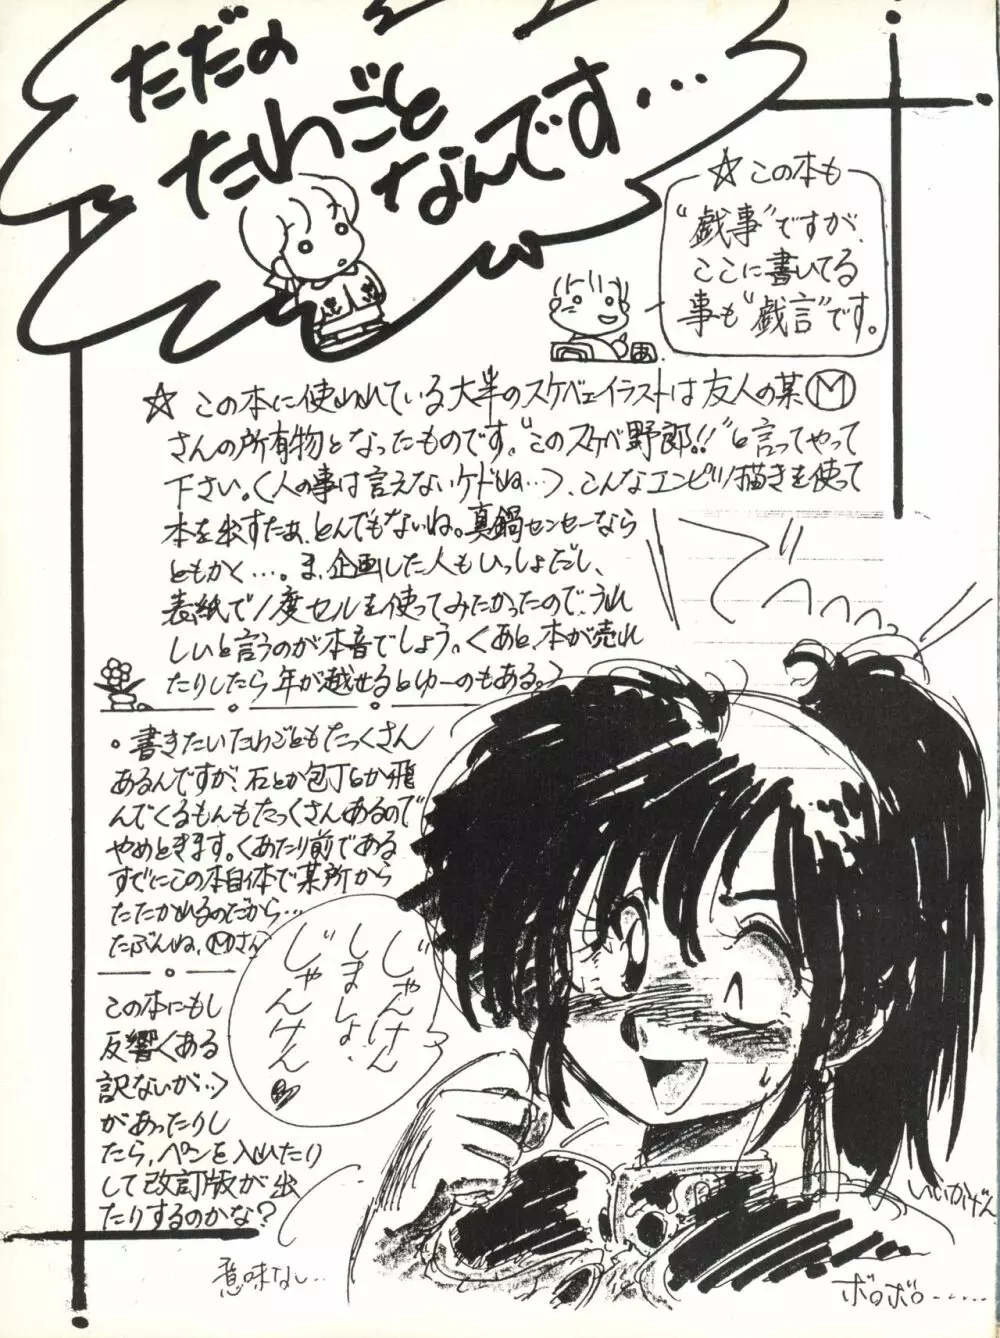 ただの
たわごと
なんです…
☆この本も
"戯事"ですが、
ここに書いてる
事も"戯言"です。
あ
☆ この本に使われている大半のスケベェイラストは友人の某Ⓜ
さんの所有物となったものです。"このスケベ野郎!!"と言ってやって
下さい。<人の事は言えないケドね…>、こんなエンピツ描きを使って
本を出すたぁ、とんでもないね。真鍋センセーなら
ともかく…。ま、企画した人もいっしょだし、
表紙で1度セルを使ってみたかったので、うれ
しいと言うのが本音でしょう。<あと、本が売れ
たりしたら年が越せるとゆーのもある。>
・書きたいたわごともたっくさん
あるんですが、石とか包丁とか飛
んでくるもんもたっくさんあるので
やめときます。<あたり前である
すぐにこの本自体で某所から
たたかれるのだから…
たぶんね、Ⓜさん
この本にもし
反響<ある
訳ないが…>
があったりし
たら、ペンを入れたり
して改訂版が出
たりするのかな?
じゃんけん
しましょ、
じゃんけん♥
意味なし…
いいかげん
ボロボロ……